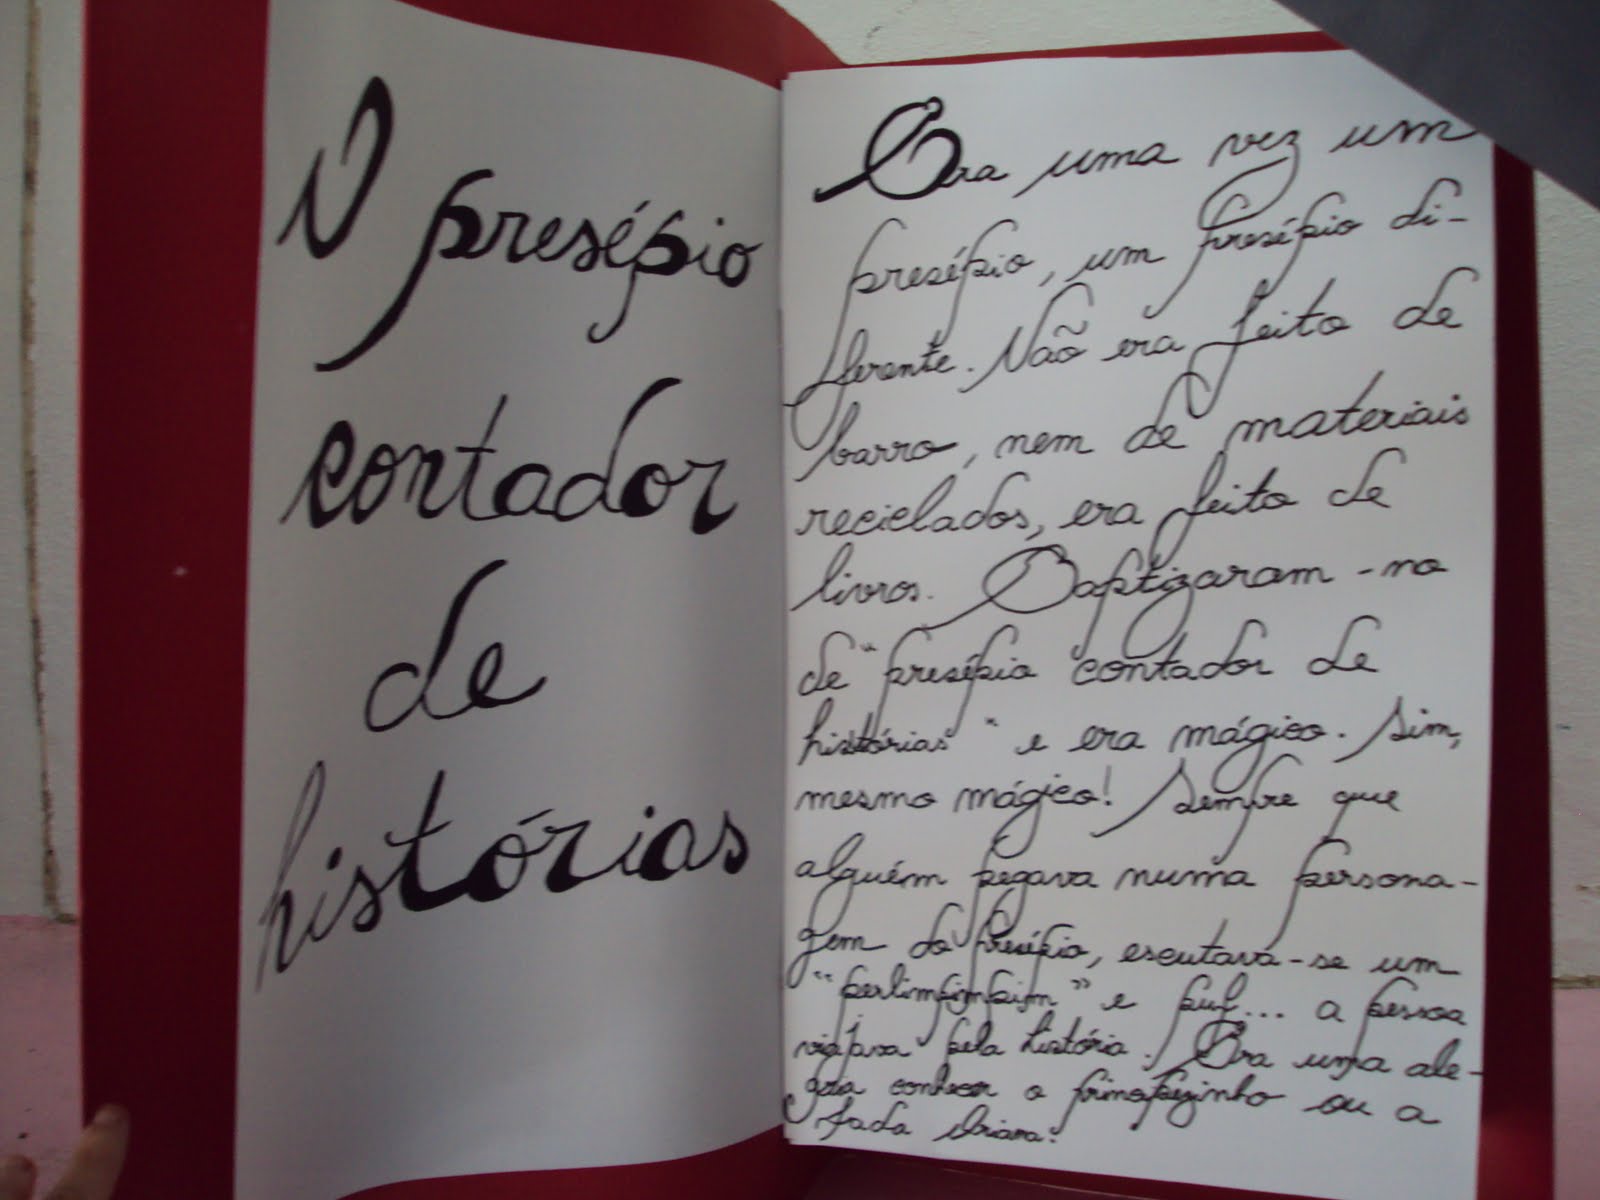 O presépio
contador
de
histórias
Era uma vez um
presépio, um presépio di-
ferente. Não era feito de
barro, nem de materiais
reciclados, era feito de
livros. Baptizaram-no
de "presépio contador de
histórias" e era mágico. Sim,
mesmo mágico! Sempre que
alguém pegava numa persona-
gem do presépio, escutava-se um
"perlimpimpim" e puf... a pessoa
viajava pela história. Era uma ale-
gria conhecer o principezinho ou a
fada Oriana!